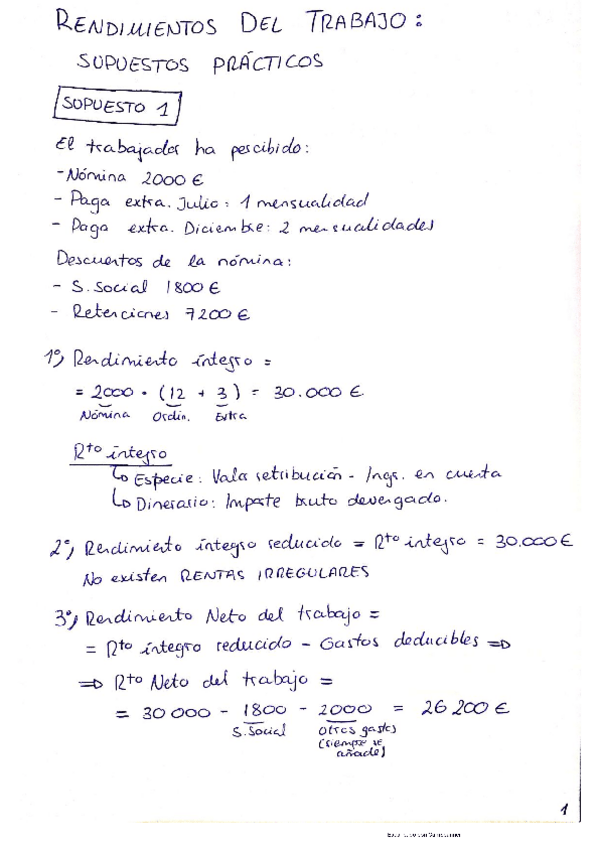 RENDIMIENTOS DEL TRABAJO:
SUPUESTOS PRÁCTICOS
SUPUESTO 1
El trabajador ha percibido:
- Nómina 2000 €
- Paga extra. Julio: 1 mensualidad
- Paga extra. Diciembre: 2 mensualidades
Descuentos de la nómina:
- S. Social 1800 €
- Retenciones 7200 €
1º) Rendimiento íntegro =
= 2000 · (12 + 3) = 30.000 €
Nómina Ordin. Extra
Rto íntegro
↳ Especie: Valor retribución - Ingr. en cuenta
↳ Dinerario: Importe bruto devengado.
2º) Rendimiento íntegro reducido = Rto íntegro = 30.000 €
No existen RENTAS IRREGULARES
3º) Rendimiento Neto del trabajo =
= Rto íntegro reducido - Gastos deducibles ⇒
⇒ Rto Neto del trabajo =
= 30 000 - 1800 - 2000 = 26 200 €
S. Social Otros gastos
(siempre se
añade)
1